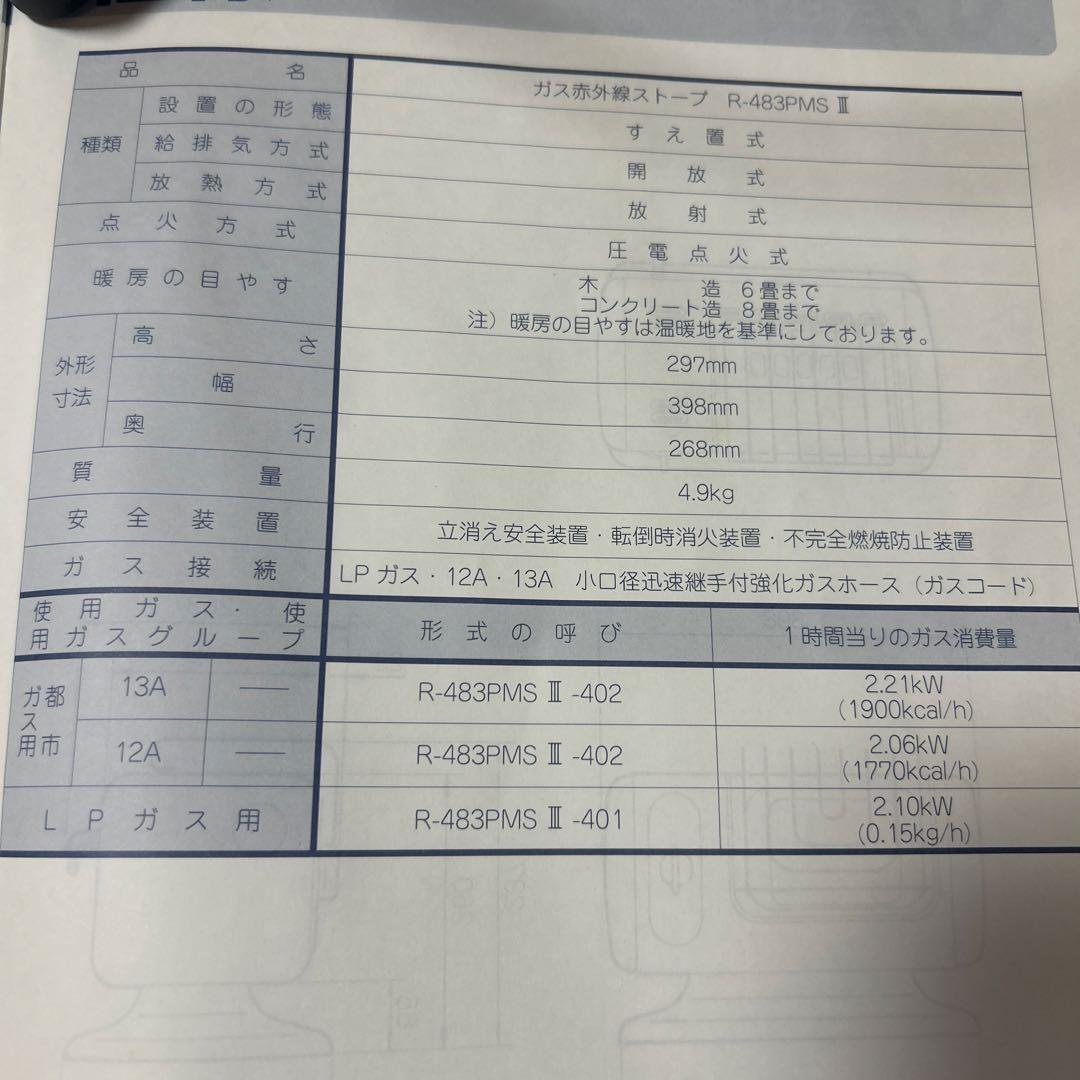 品名 ガス赤外線ストーブ R-483PMSⅢ
種類 設置の形態 すえ置式
給排気方式 開放式
放熱方式 放射式
点火方式 圧電点火式
暖房の目やす 木造 6畳まで
コンクリート造 8畳まで
注）暖房の目やすは温暖地を基準にしております。
外形寸法 高さ 297mm
幅 398mm
奥行 268mm
質量 4.9kg
安全装置 立消え安全装置・転倒時消火装置・不完全燃焼防止装置
ガス接続 LPガス・12A・13A 小口径迅速継手付強化ガスホース（ガスコード）
使用ガス・使用ガスグループ 形式の呼び 1時間当りのガス消費量
都市ガス用 13A — R-483PMSⅢ-402 2.21kW
(1900kcal/h)
12A — R-483PMSⅢ-402 2.06kW
(1770kcal/h)
LPガス用 R-483PMSⅢ-401 2.10kW
(0.15kg/h)